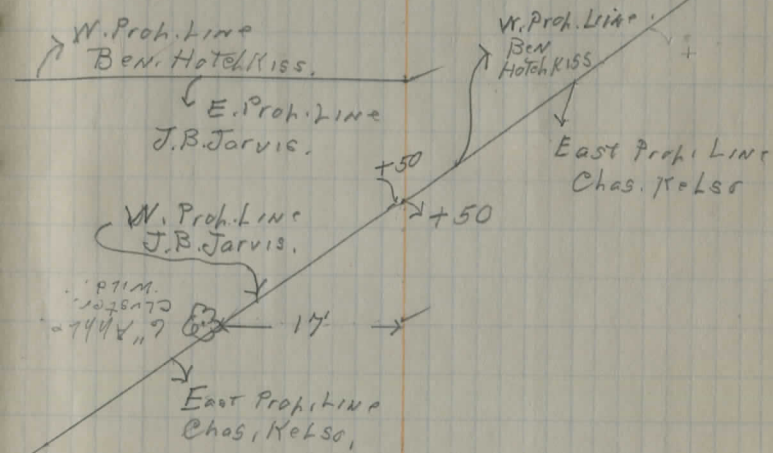 W. Prop. Line
Ben. Hotchkiss.
E. Prop. Line
J.B. Jarvis.
W. Prop. Line
Ben
Hotchkiss
East Prop. Line
Chas. Kelso
+50
+50
W. Prop. Line
J.B. Jarvis.
6" Apple
Cluster
Wild
17'
East Prop. Line
Chas. Kelso.